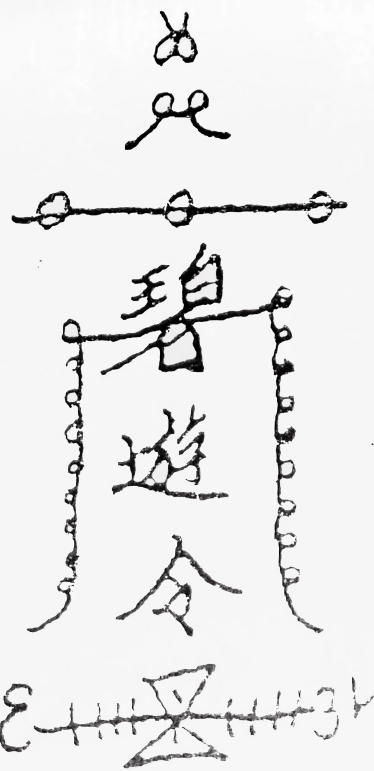 碧
遊
令